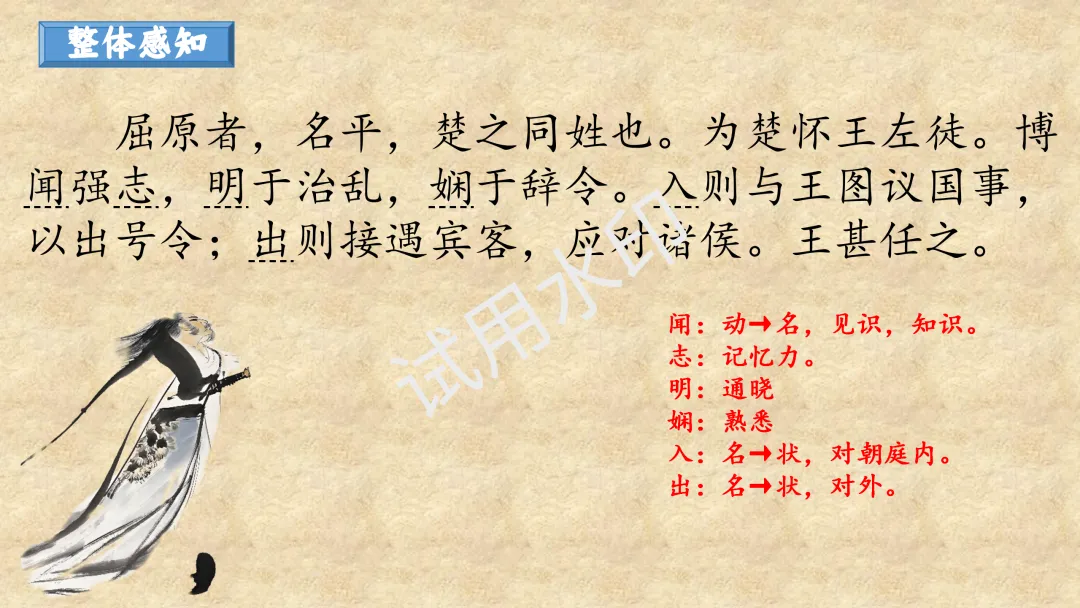 整体感知
屈原者，名平，楚之同姓也。为楚怀王左徒。博
闻强志，明于治乱，娴于辞令。入则与王图议国事，
以出号令；出则接遇宾客，应对诸侯。王甚任之。
试用水印
闻：动→名，见识，知识。
志：记忆力。
明：通晓
娴：熟悉
入：名→状，对朝庭内。
出：名→状，对外。